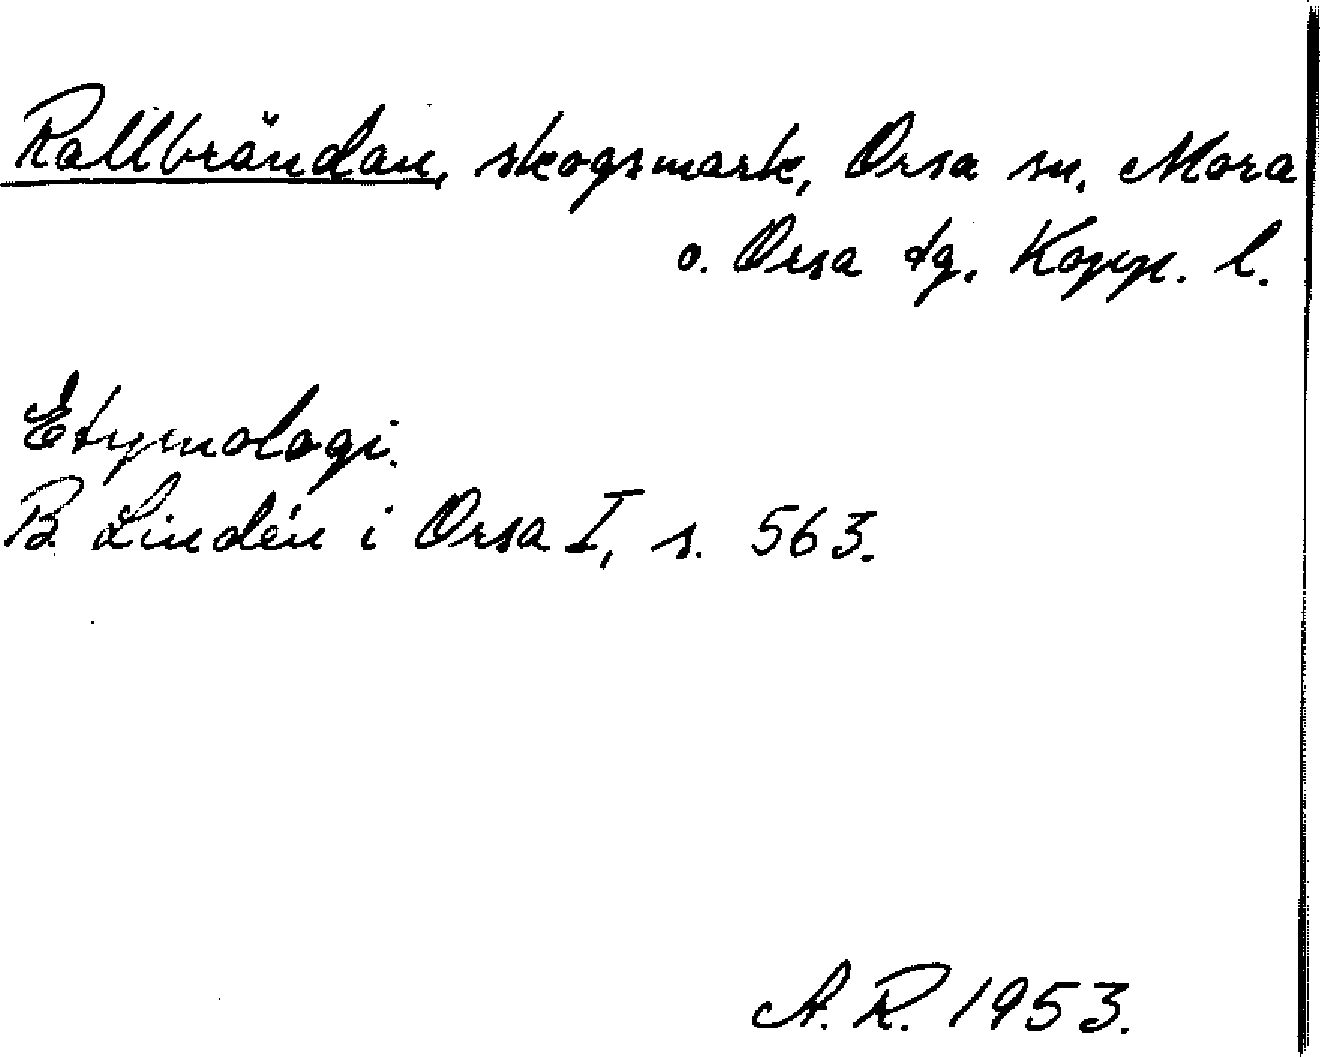 Rallbrändan, skogsmark, Orsa sn. Mora
o. Orsa tg. Kopp. l.
Etymologi.
B. Lindén i Orsa I, s. 563.
A. R. 1953.